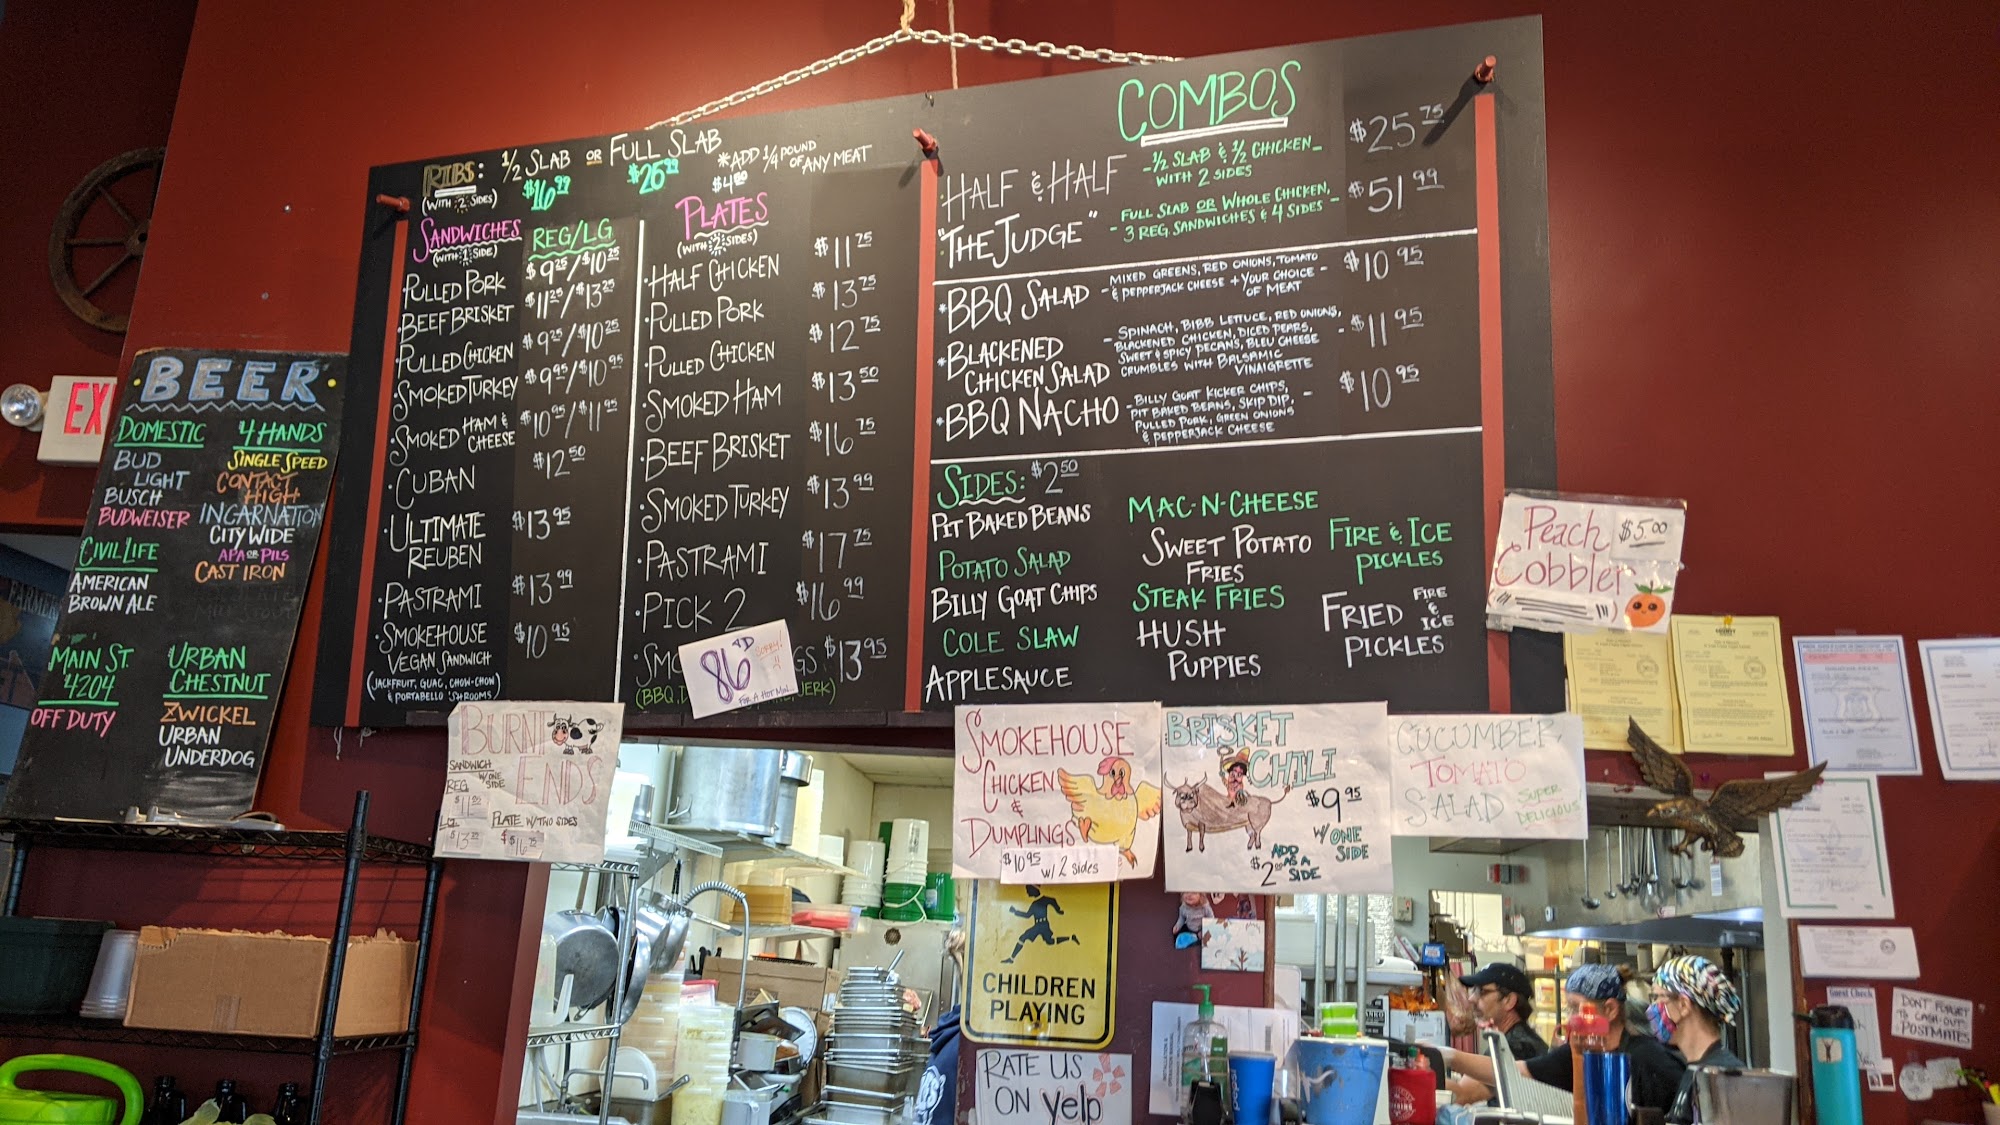 BEER
DOMESTIC
BUD
LIGHT
BUSCH
BUDWEISER
CIVIL LIFE
AMERICAN
BROWN ALE
MAIN ST.
4204
OFF DUTY
4 HANDS
SINGLE SPEED
CONTACT
HIGH
INCARNATION
CITY WIDE
APA OR PILS
CAST IRON
URBAN
CHESTNUT
ZWICKEL
URBAN
UNDERDOG
EX
RIBS: 1/2 SLAB OR FULL SLAB
(WITH 2 SIDES) $16.99 $26.99
*ADD 1/4 POUND
OF ANY MEAT
$4.50
SANDWICHES REG/LG
(WITH 1 SIDE)
PULLED PORK $9.25/$10.25
BEEF BRISKET $11.25/$13.25
PULLED CHICKEN $9.25/$10.25
SMOKED TURKEY $9.95/$10.95
SMOKED HAM & CHEESE $10.95/$11.95
CUBAN $12.50
ULTIMATE
REUBEN $13.95
PASTRAMI $13.99
SMOKEHOUSE
VEGAN SANDWICH $10.95
(JACKFRUIT, GUAC, CHOW-CHOW
& PORTABELLO 'SHROOMS)
PLATES
(WITH 2 SIDES)
HALF CHICKEN $11.75
PULLED PORK $13.75
PULLED CHICKEN $12.75
SMOKED HAM $13.50
BEEF BRISKET $16.75
SMOKED TURKEY $13.99
PASTRAMI $17.75
PICK 2 $16.99
SMO GS $13.95
(BBQ, JERK)
86'D
SORRY!
FOR A HOT MIN...
COMBOS
HALF & HALF - 1/2 SLAB & 1/2 CHICKEN -
WITH 2 SIDES $25.75
"THE JUDGE" - FULL SLAB OR WHOLE CHICKEN,
3 REG. SANDWICHES & 4 SIDES - $51.99
*BBQ SALAD - MIXED GREENS, RED ONIONS, TOMATO
& PEPPERJACK CHEESE + YOUR CHOICE -
OF MEAT $10.95
*BLACKENED
CHICKEN SALAD - SPINACH, BIBB LETTUCE, RED ONIONS,
BLACKENED CHICKEN, DICED PEARS,
SWEET & SPICY PECANS, BLEU CHEESE
CRUMBLES WITH BALSAMIC
VINAIGRETTE - $11.95
*BBQ NACHO - BILLY GOAT KICKER CHIPS,
PIT BAKED BEANS, SKIP DIP, -
PULLED PORK, GREEN ONIONS
& PEPPERJACK CHEESE $10.95
SIDES: $2.50
PIT BAKED BEANS
POTATO SALAD
BILLY GOAT CHIPS
COLE SLAW
APPLESAUCE
MAC-N-CHEESE
SWEET POTATO
FRIES
STEAK FRIES
HUSH
PUPPIES
FIRE & ICE
PICKLES
FRIED FIRE & ICE
PICKLES
Peach $5.00
Cobbler
BURNT
ENDS
SANDWICH
W/ONE
SIDE
REG
LG
PLATE W/TWO SIDES
SMOKEHOUSE
CHICKEN
&
DUMPLINGS
$10.95 w/ 2 sides
BRISKET
CHILI
$9.95
W/ONE
SIDE
ADD
AS A
SIDE
$2.00
CUCUMBER
TOMATO
SALAD SUPER
DELICIOUS
CHILDREN
PLAYING
RATE US
ON yelp
Guest Check
DON'T FORGET
TO CASH-OUT
POSTMATES